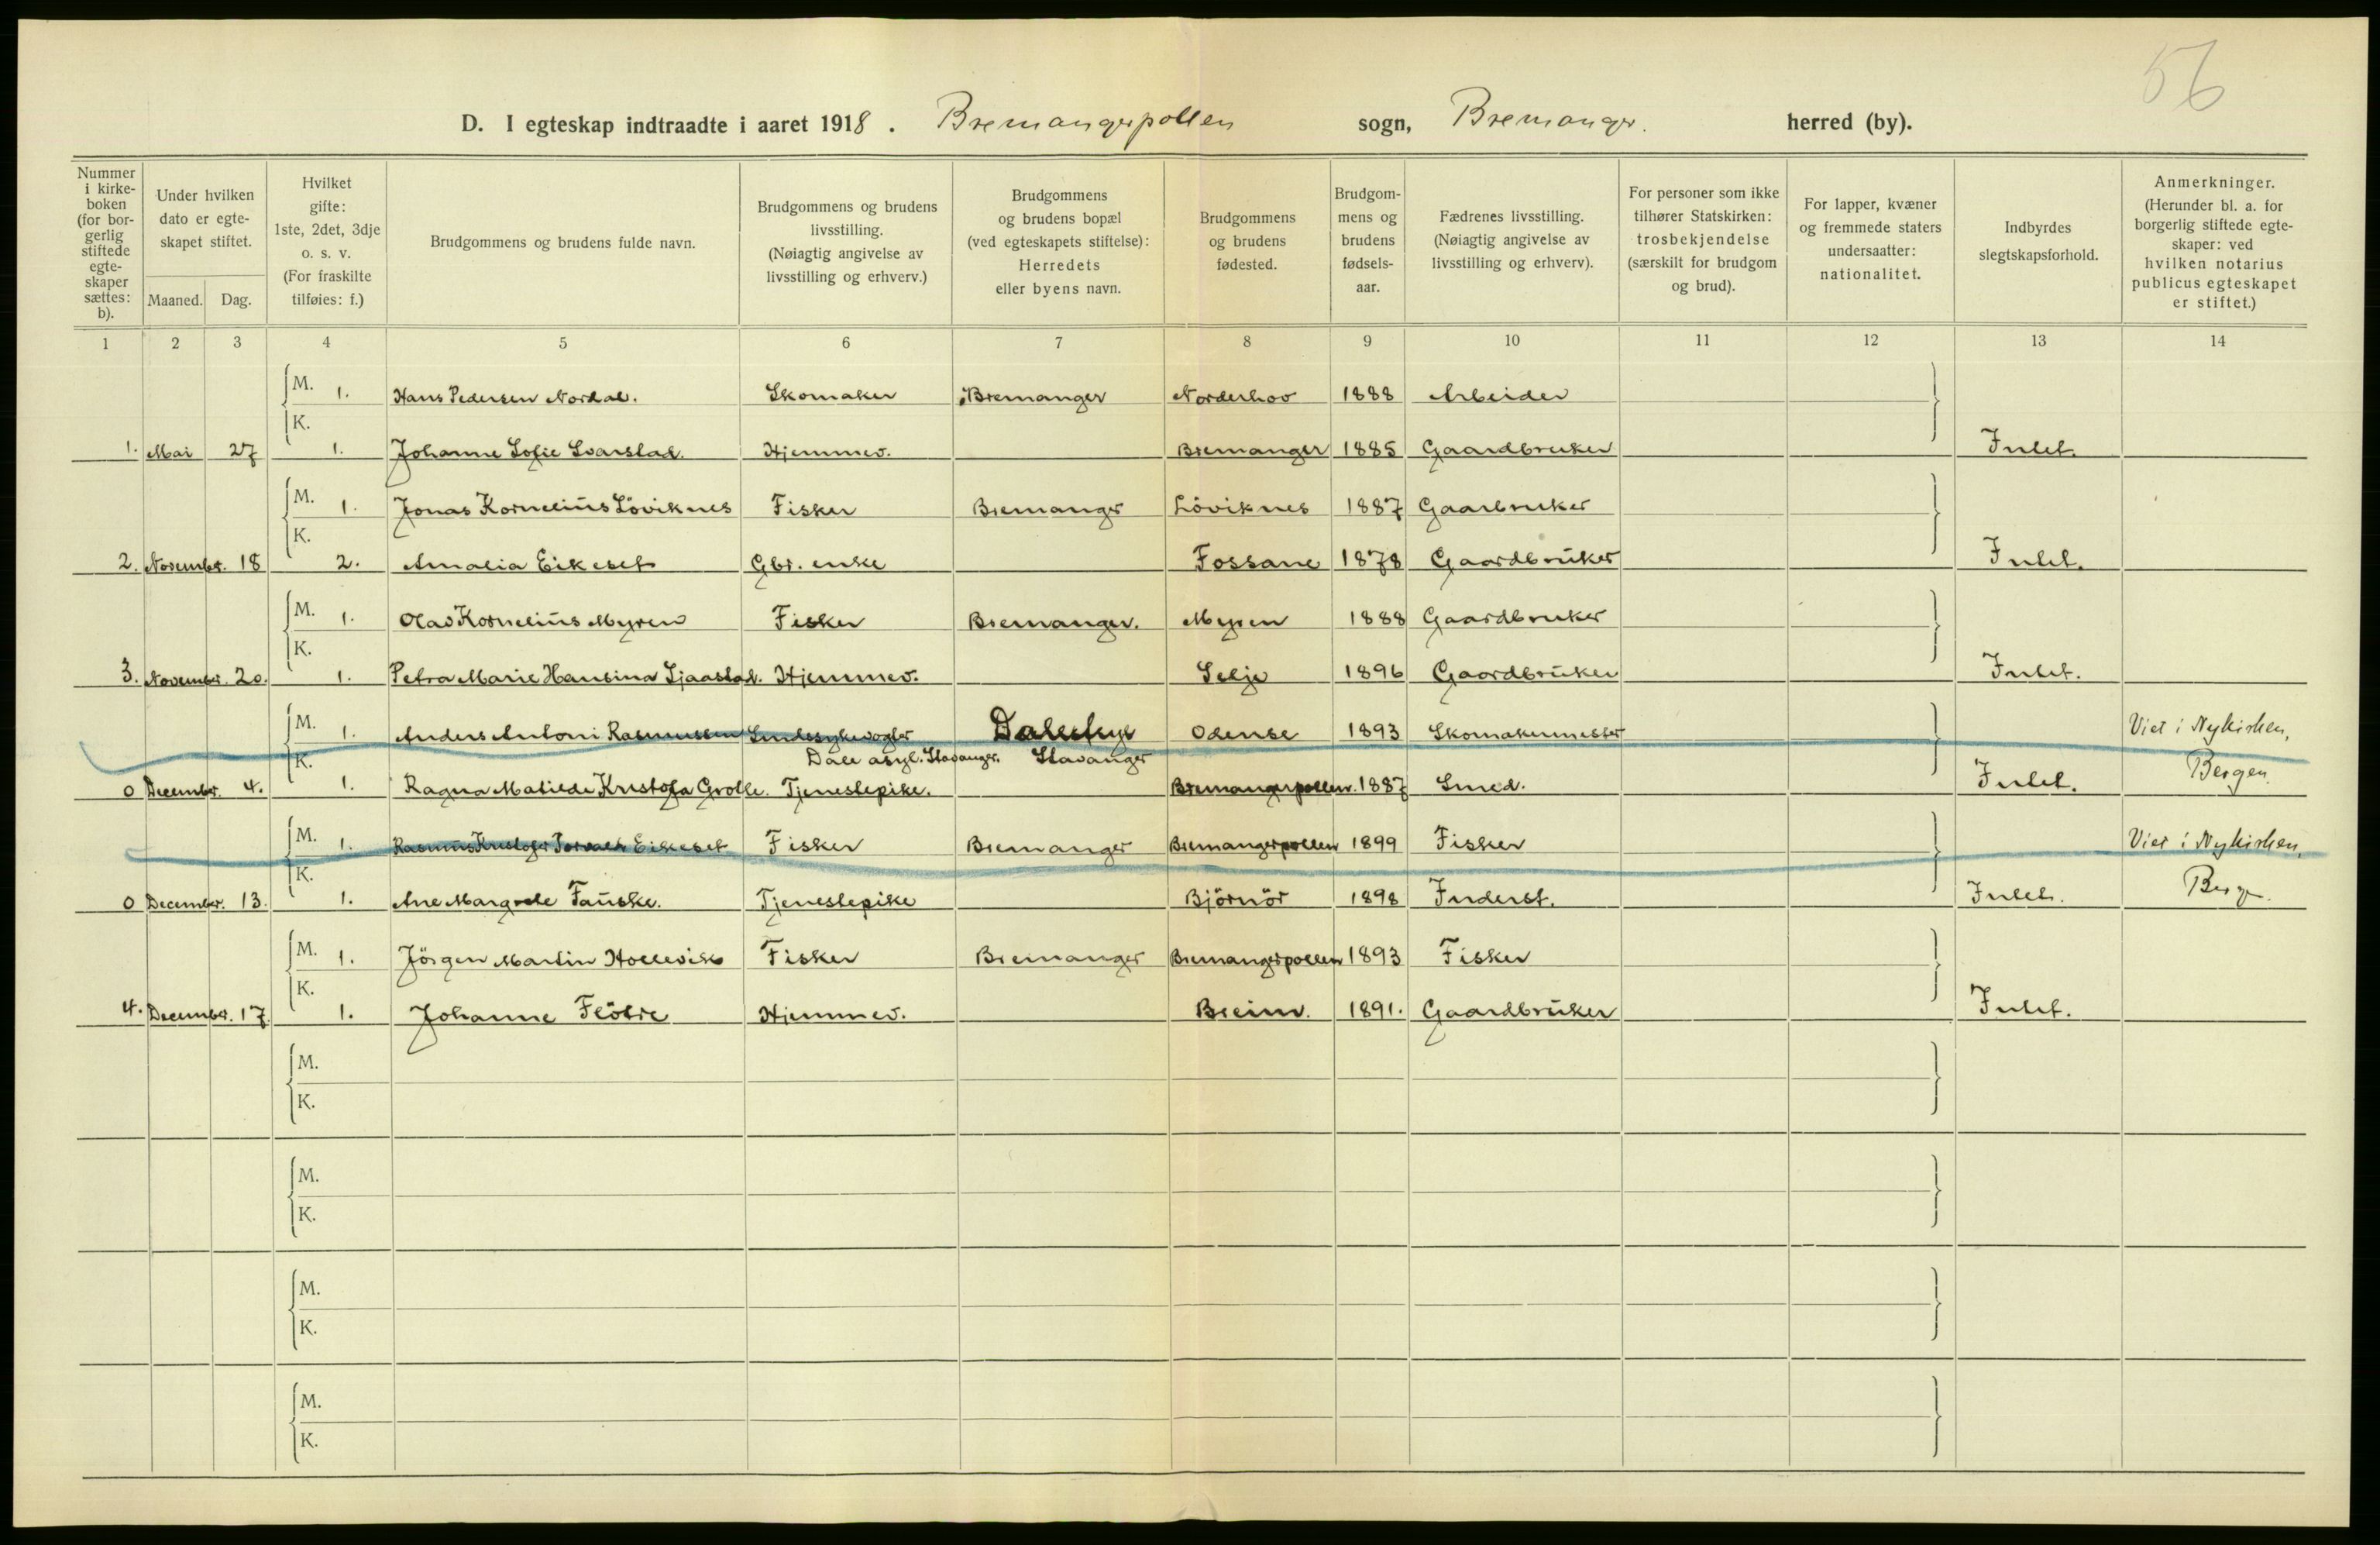 56
D. I egteskap indtraadte i aaret 1918. Bremangerpollen sogn, Bremanger. herred (by).
Nummer i kirke-boken (for bor-gerlig stiftede egte-skaper sættes: b).
Under hvilken dato er egte-skapet stiftet.
Maaned. Dag.
Hvilket gifte: 1ste, 2det, 3dje o. s. v. (For fraskilte tilføies: f.)
Brudgommens og brudens fulde navn.
Brudgommens og brudens livsstilling. (Nøiagtig angivelse av livsstilling og erhverv.)
Brudgommens og brudens bopæl (ved egteskapets stiftelse): Herredets eller byens navn.
Brudgommens og brudens fødested.
Brudgom-mens og brudens fødsels-aar.
Fædrenes livsstilling. (Nøiagtig angivelse av livsstilling og erhverv).
For personer som ikke tilhører Statskirken: trosbekjendelse (særskilt for brudgom og brud).
For lapper, kvæner og fremmede staters undersaatter: nationalitet.
Indbyrdes slegtskapsforhold.
Anmerkninger. (Herunder bl. a. for borgerlig stiftede egte-skaper: ved hvilken notarius publicus egteskapet er stiftet.)
1 2 3 4 5 6 7 8 9 10 11 12 13 14
M. 1. Hans Pedersen Nordal. Skomaker Bremanger Norderhov 1888 Arbeider
K.
1. Mai 27 1. Johanne Sofie Svarstad. Hjemmev. Bremanger 1885 Gaardbruker Intet.
M. 1. Jonas Kornelius Löviknes Fisker Bremanger Löviknes 1887 Gaarbruker
K.
2. November. 18 2. Amalia Eikeset Gbr. enke Fossane 1878 Gaardbruker Intet.
M. 1. Olav Kornelius Myren Fisker Bremanger. Myren 1888 Gaardbruker
K.
3. November. 20. 1. Petra Marie Hansina Sjaastad. Hjemmev. Selje 1896 Gaardbruker Intet.
M. 1. Anders Antoni Rasmussen Sindssykevogter Odense 1893 Skomakermester Viet i Nykirken,
K. Dale asyl. Stavanger. Stavanger
0 December. 4. 1. Ragna Matilde Kristofa Grotle. Tjenestepike. Bremangerpollen. 1887 Smed. Intet. Bergen.
M. 1. Rasmus Kristofer Torvald Eikeset Fisker Bremanger Bremangerpollen 1899 Fisker Viet i Nykirken,
K.
0 December. 13. 1. Ane Margrete Fauske. Tjenestepike Björnör 1898 Inderst. Intet. Bergen.
M. 1. Jörgen Martin Hollevik Fisker Bremanger Bremangerpollen 1893 Fisker
K.
4. December. 17. 1. Johanne Flötre Hjemmev. Breim. 1891. Gaardbruker Intet.
M.
K.
M.
K.
M.
K.
M.
K.